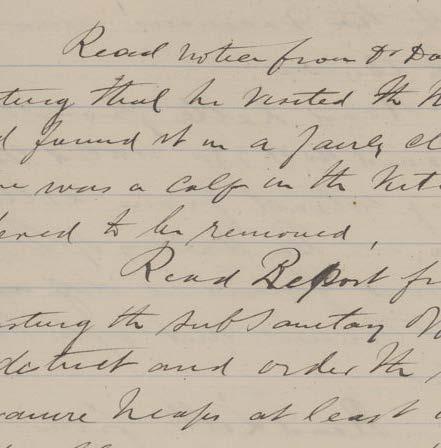 Read notice from Dr Do
ting that he visited the W
d found it in a fairly cl
re was a calf in the Kit
dered to be removed,
Read Report fr
esting the sub Sanitary
district and order the
manure heaps at least